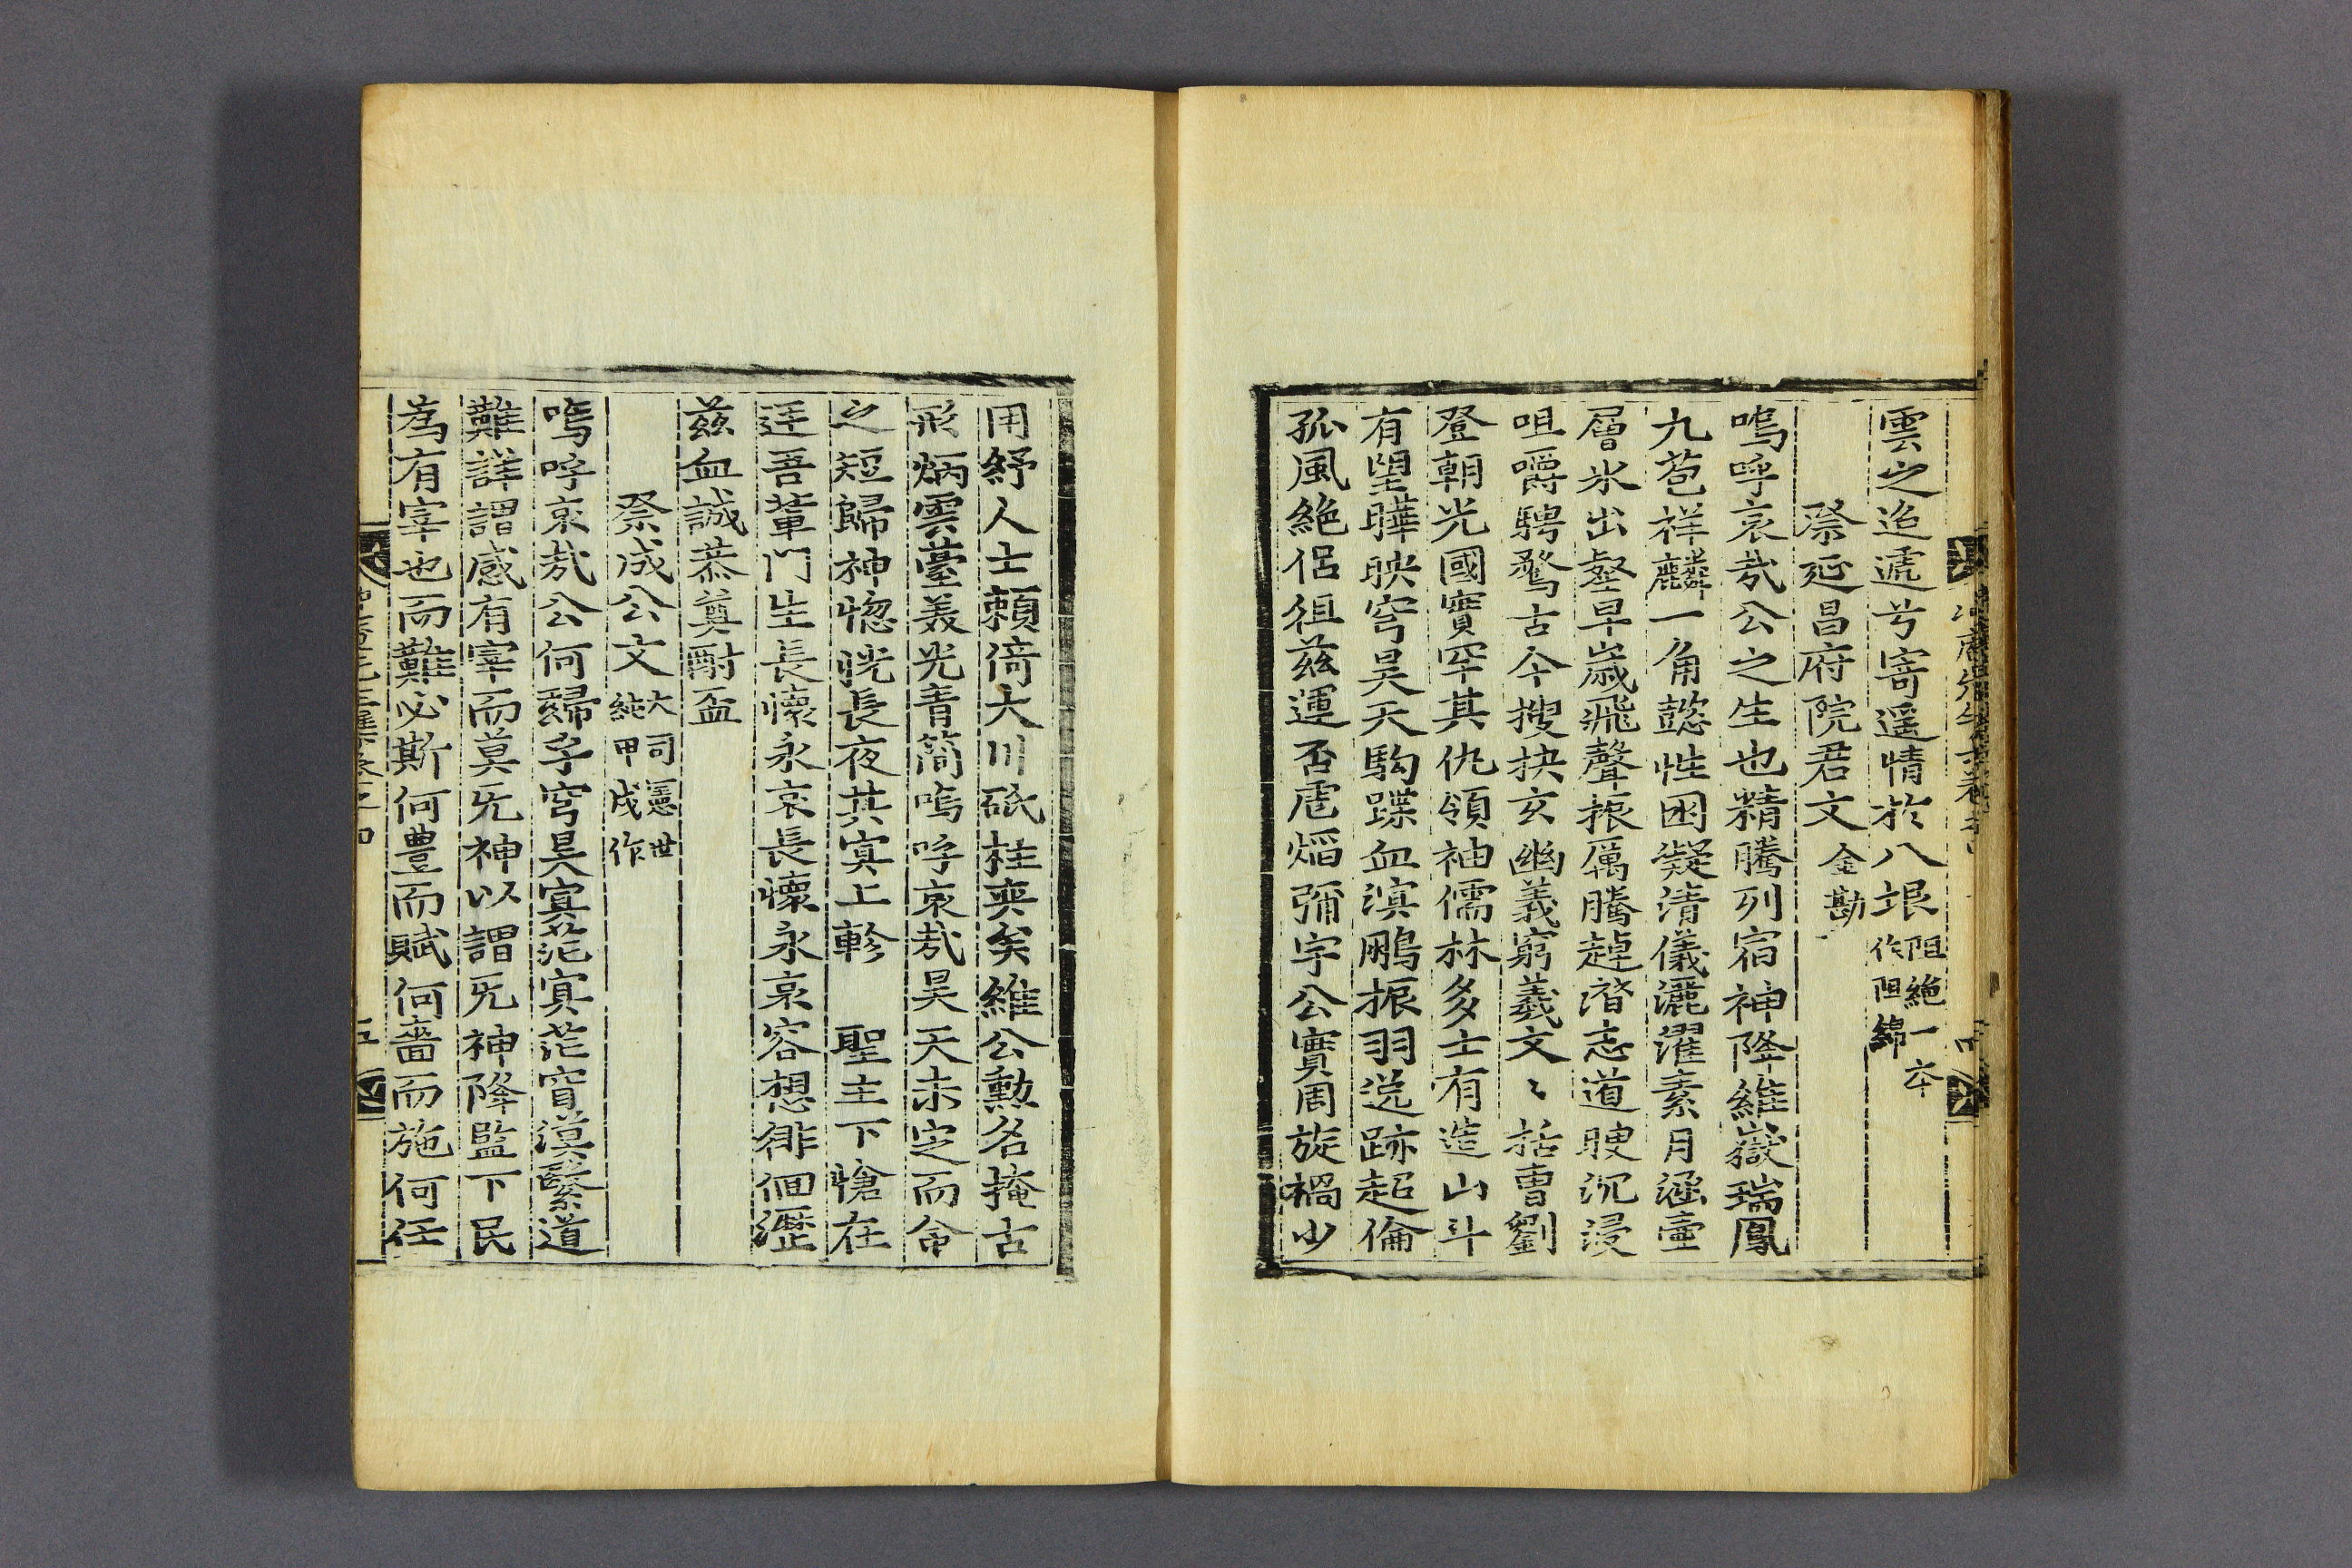 雲之迢遞兮寄遥情於八垠阻絶一本作阻綿
祭延昌府院君文金勘
嗚呼哀㦲公之生也精騰列宿神降維嶽瑞鳳
九苞祥麟一角懿性困凝清儀灑濯素月涵壷
層氷出壑早歲飛聲振厲騰趠潛志道腴沉浸
咀嚼騁騖古今搜抉玄幽義窮羲文〻括曹劉
登朝光國實罕其仇領袖儒林多士有造山斗
有望曄映穹昊天駒蹀血溟鵬振羽逸跡超倫
孤風絶侣徂兹運否虐熖彌宇公實周旋禍少
用紓人士頼倚大川砥柱奭矣維公勲名掩古
彤炳雲䑓美光青簡嗚呼哀㦲昊天未定而命
之短歸神惚恍長夜其寘上軫 聖主下愴在
廷吾軰門生長懷永哀長懷永哀容想徘徊瀝
兹血誠恭奠酹盃
祭成公文大司憲世純甲戌作
嗚呼哀㦲公何歸乎穹昊寘茫寘茫窅漠繄道
難詳謂感有宰而莫旣神以謂旣神降監下民
為有宰也而難必斯何豊而賦何嗇而施何任